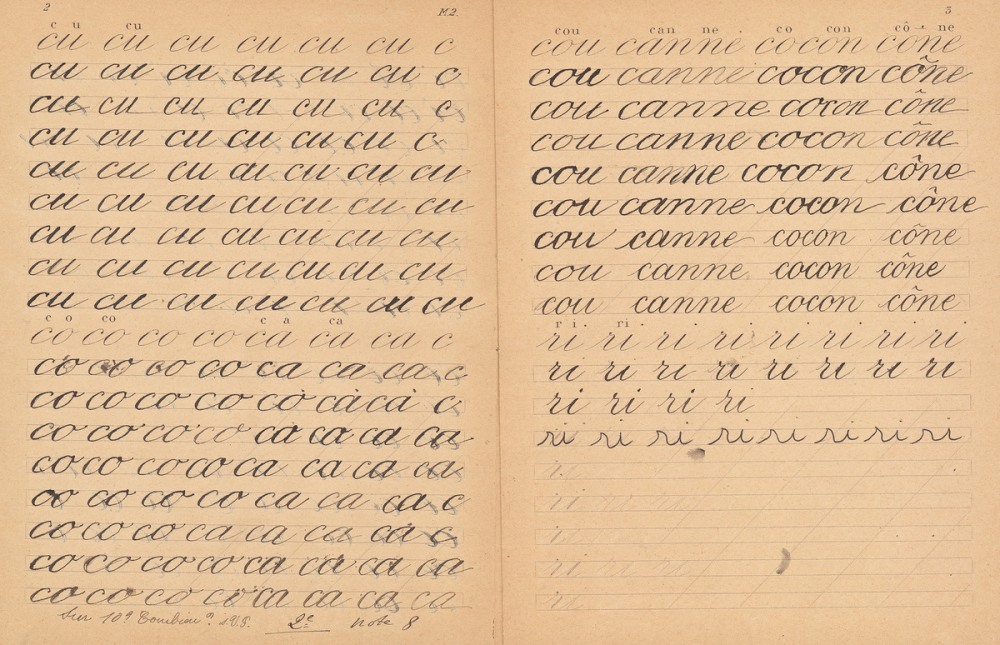 2
M2.
c u cu
cu cu cu cu cu cu c
cu cu cu cu cu cu c
cu cu cu cu cu cu c
cu cu cu cu cu cu c
cu cu cu cu cu cu cu
cu cu cu cu cu cu cu
cu cu cu cu cu cu cu
cu cu cu cu cu cu cu
cu cu cu cu cu cu cu
c o co c a ca
co co co co ca ca ca c
co co co co ca ca ca c
co co co co cò cà cà c
co co co co ca ca ca ca
co co co co ca ca ca ca
co co co co ca ca ca c
co co co ca ca ca ca c
co co co co ca ca ca ca
co co co co ca ca ca ca
sur 10? 2e note 8
3
cou can ne co con cô - ne
cou canne cocon cône
cou canne cocon cône
cou canne cocon cône
cou canne cocon cône
cou canne cocon cône
cou canne cocon cône
cou canne cocon cône
cou canne cocon cône
cou canne cocon cône
r i . ri .
ri ri ri ri ri ri ri ri
ri ri ri ri ri ri ri ri
ri ri ri ri
ri ri ri ri ri ri ri ri
ri
ri
ri
ri
ri